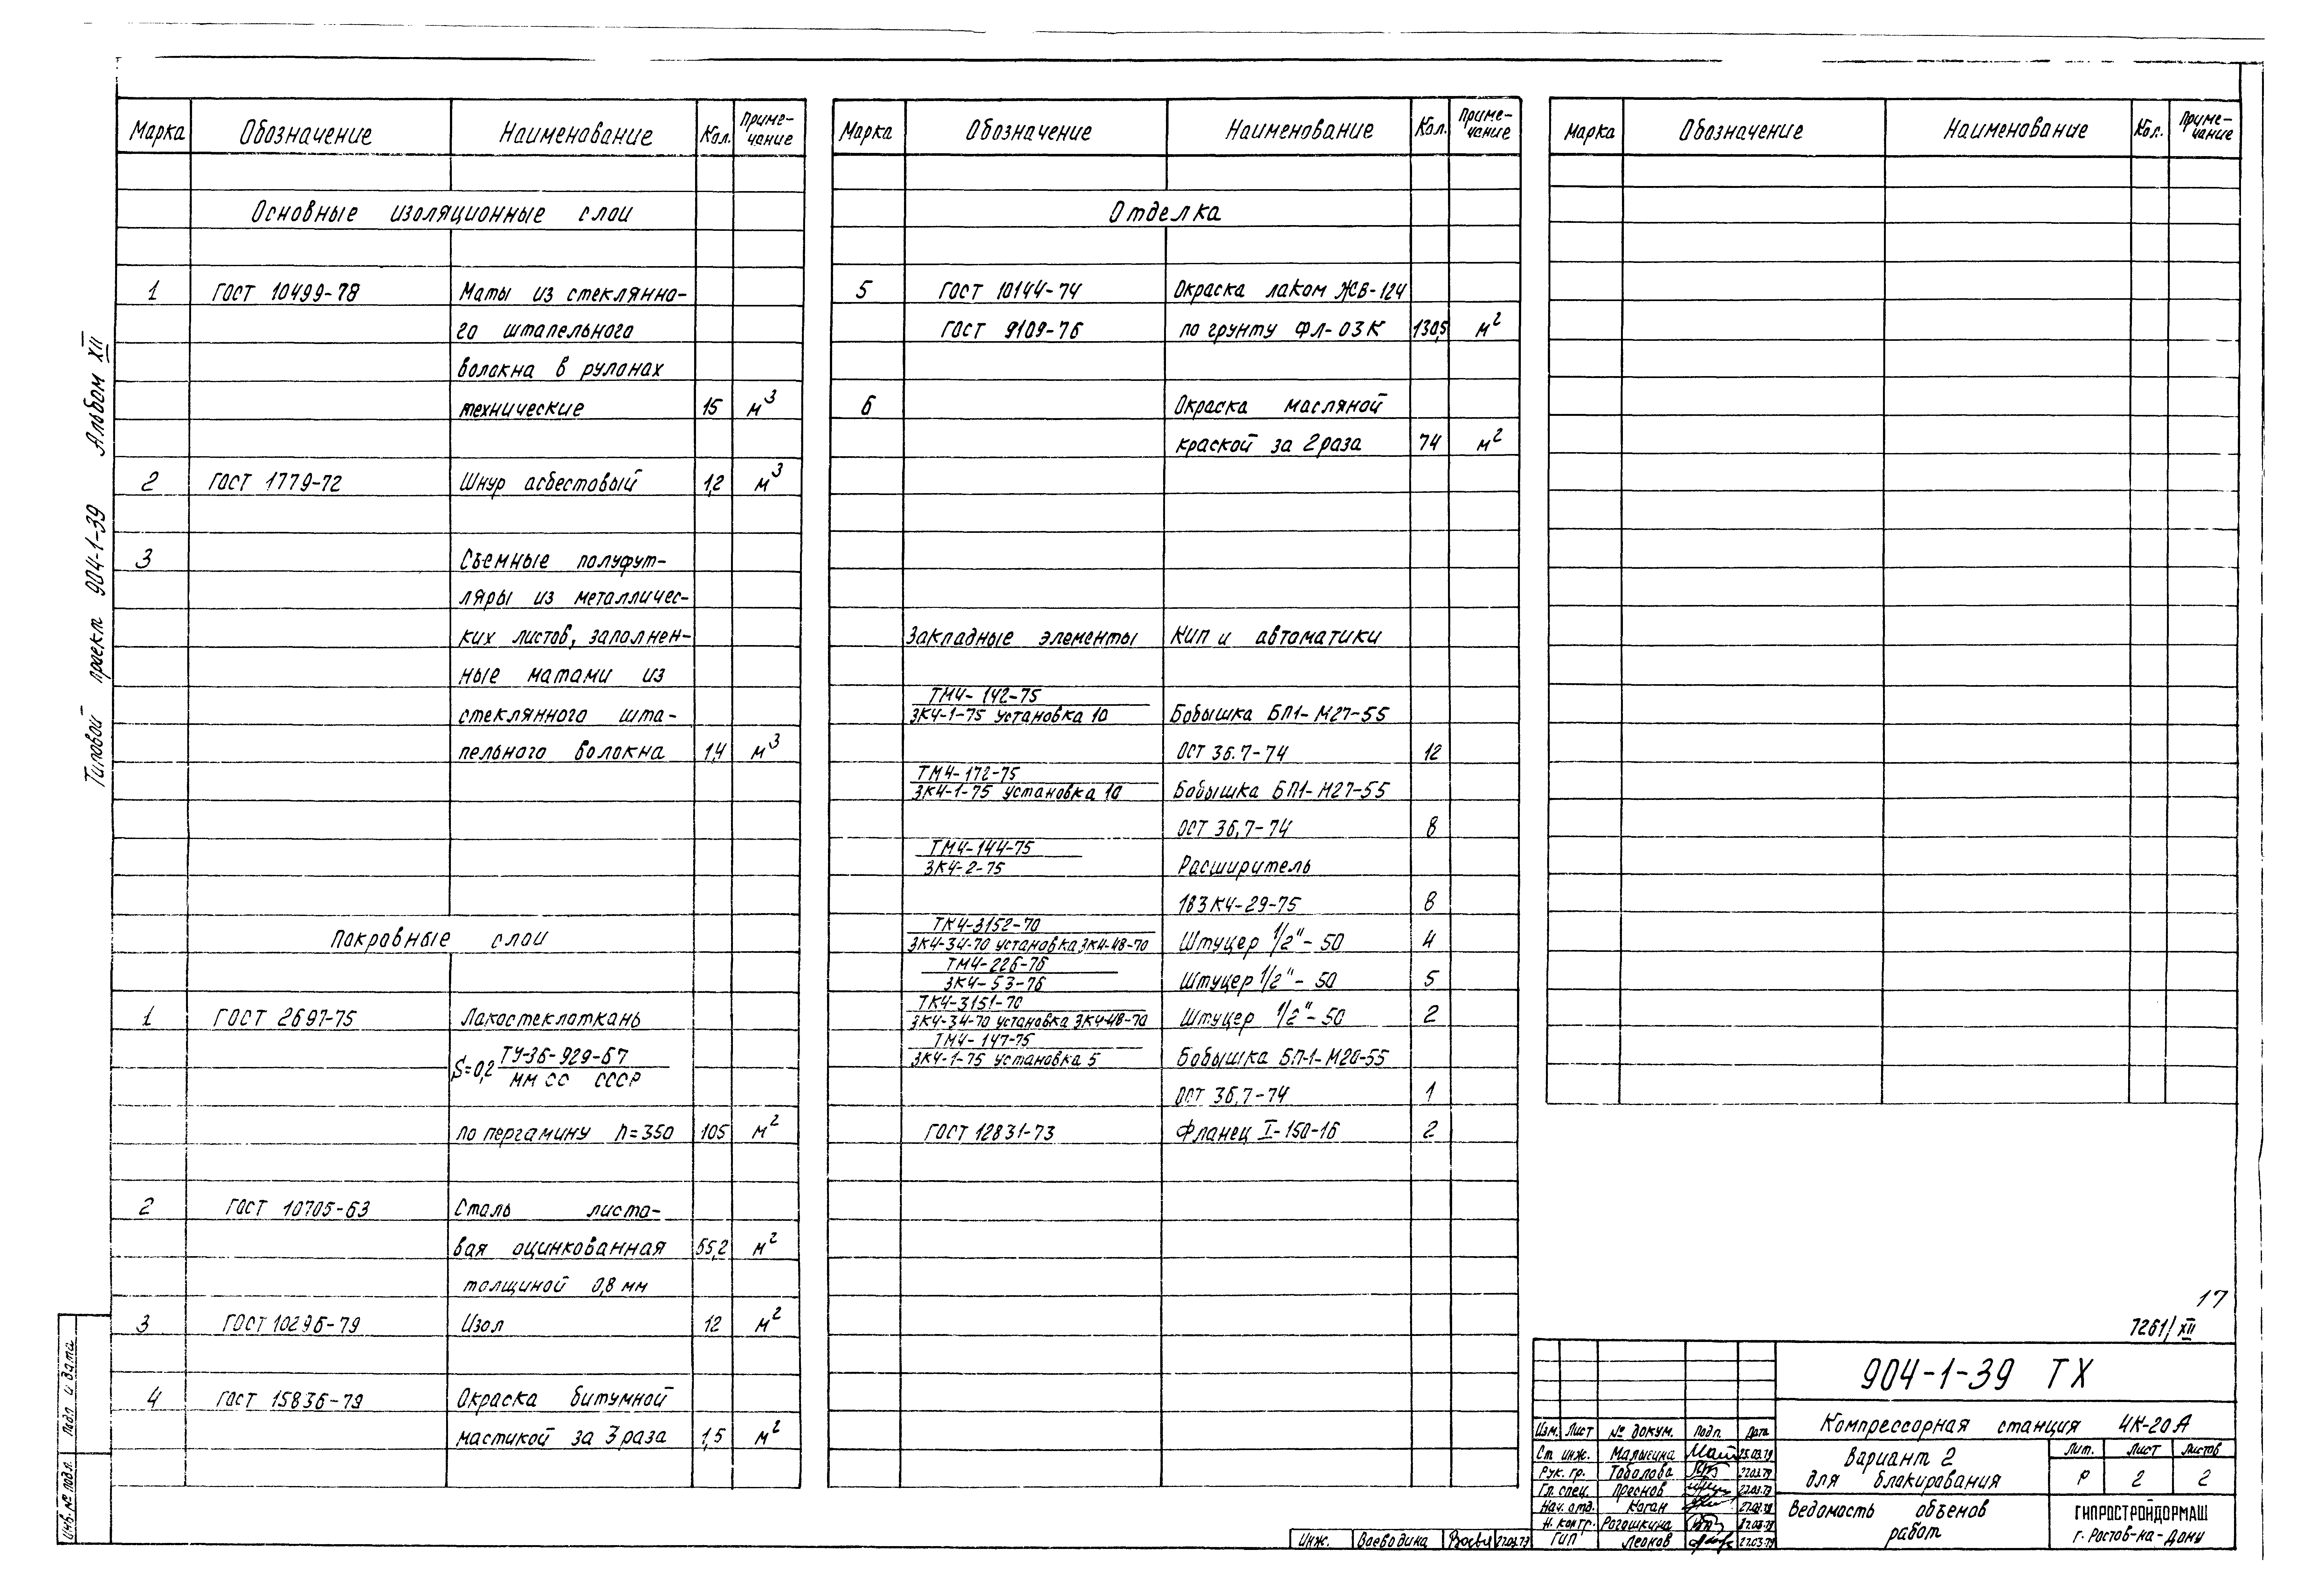 Типовой проект 904-1-39 Альбом XII
Марка Обозначение Наименование Кол. Приме-
чание
Основные изоляционные слои
1 ГОСТ 10499-78 Маты из стеклянно-
го штапельного
волокна в рулонах
технические 15 м3
2 ГОСТ 1779-72 Шнур асбестовый 1,2 м3
3 Съемные полуфут-
ляры из металличес-
ких листов, заполнен-
ные матами из
стеклянного шта-
пельного волокна 1,4 м3
Покровные слои
1 ГОСТ 2697-75 Лакостеклоткань
S=0,2 ТУ-36-929-67
ММ СС СССР
по пергамину П=350 105 м2
2 ГОСТ 10705-63 Сталь листо-
вая оцинкованная 65,2 м2
толщиной 0,8 мм
3 ГОСТ 10296-79 Изол 12 м2
4 ГОСТ 15836-79 Окраска битумной
мастикой за 3 раза 1,5 м2
Марка Обозначение Наименование Кол. Приме-
чание
Отделка
5 ГОСТ 10144-74 Окраска лаком ЖВ-124
ГОСТ 9109-76 по грунту ФЛ-03К 130,5 м2
6 Окраска масляной
краской за 2 раза 74 м2
Закладные элементы Кип и автоматики
ТМ4-142-75
ЗК4-1-75 установка 10 Бобышка БП1-М27-55
ОСТ 36.7-74 12
ТМ4-172-75
ЗК4-1-75 установка 10 Бобышка БП1-М27-55
ОСТ 36,7-74 8
ТМ4-144-75
ЗК4-2-75 Расширитель
183К4-29-75 8
ТК4-3152-70
ЗК4-34-70 установка ЗК4-48-70 Штуцер 1/2"-50 4
ТМ4-226-76
ЗК4-53-76 Штуцер 1/2"-50 5
ТК4-3151-70
ЗК4-34-70 установка ЗК4-48-70 Штуцер 1/2"-50 2
ТМ4-147-75
ЗК4-1-75 установка 5 Бобышка БП-1-М20-55
ОСТ 36,7-74 1
ГОСТ 12831-73 Фланец I-150-16 2
Марка Обозначение Наименование Кол. Приме-
чание
17
7261/XII
904-1-39 ТХ
Компрессорная станция 4К-20А
Вариант 2
для блокирования
Лит. Лист Листов
Р 2 2
Ведомость объемов
работ
ГИПРОСТРОЙДОРМАШ
г. Ростов-на-Дону
Изм. Лист № докум. Подп. Дата
Ст. инж. Малыгина 25.03.79
Рук. гр. Таболова 27.03.79
Гл. спец. Преснов 27.03.79
Нач. отд. Коган 27.03.79
Н. контр. Рогашкина 27.03.79
ГИП Леонов 27.03.79
Инж. Воеводина 27.03.79
Инв. № подл. Подп. и дата